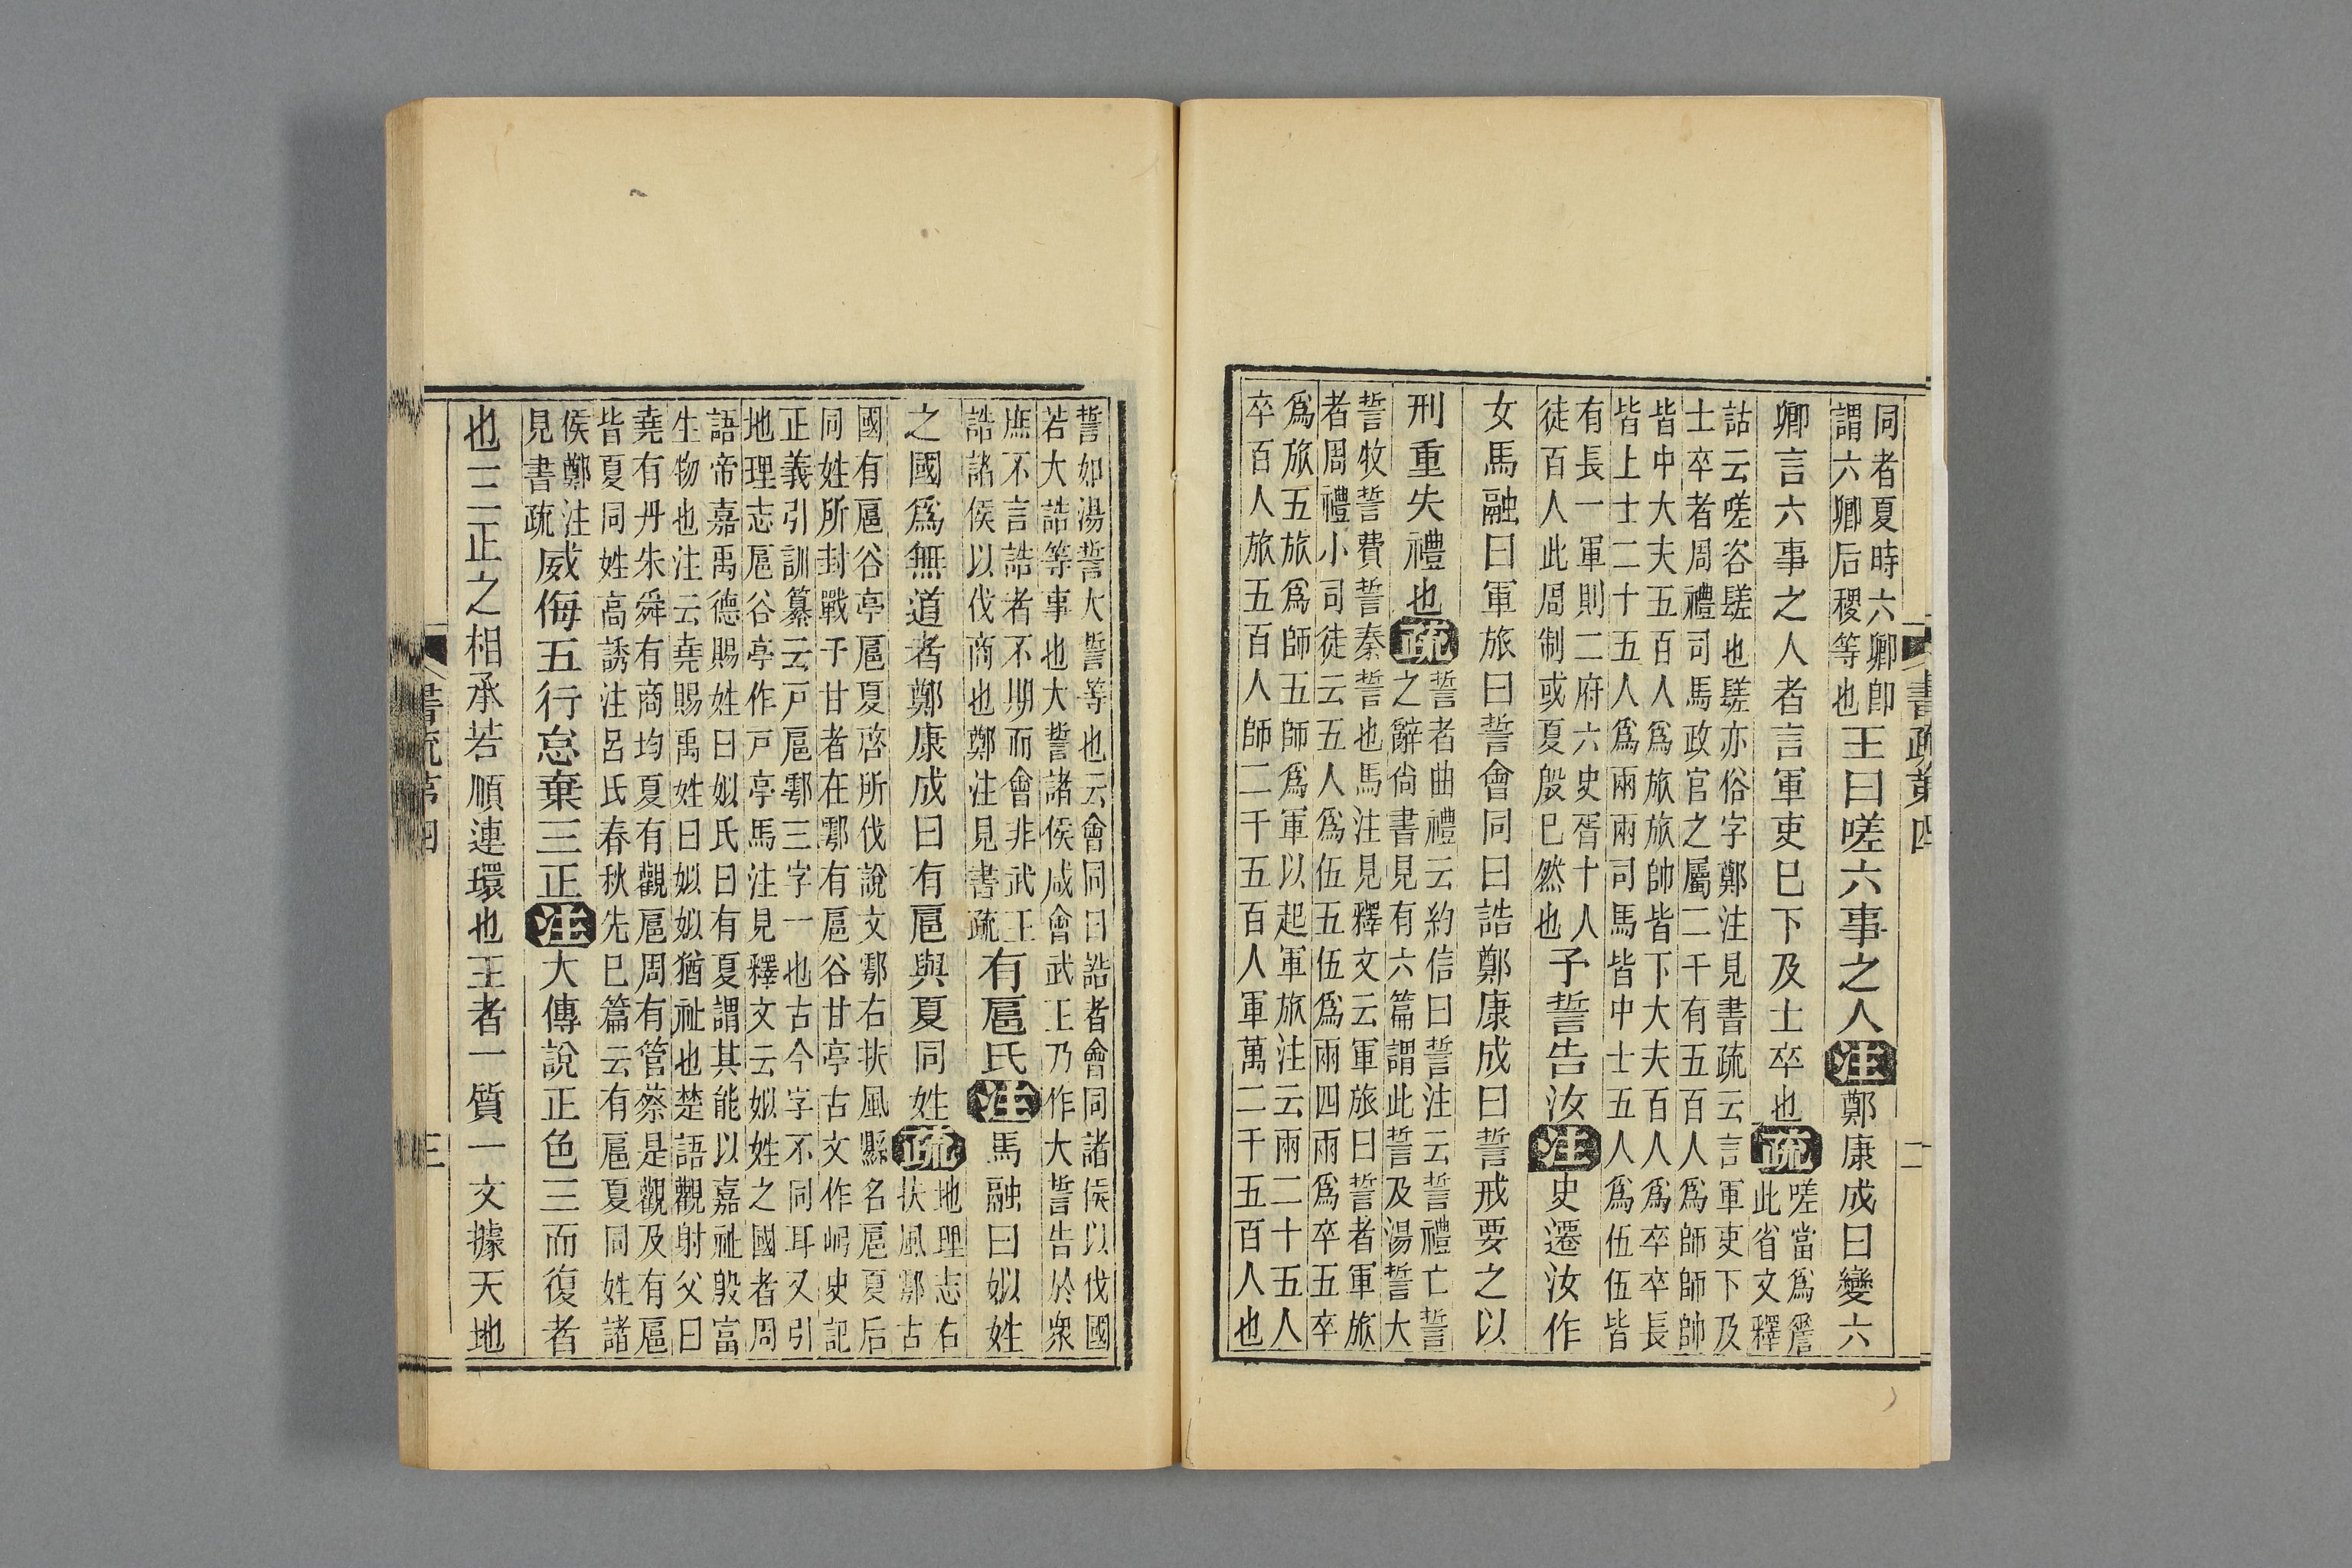 書疏第四 二
同者夏時六卿卽
謂六卿后稷等也
王曰嗟六事之人注鄭康成曰變六
卿言六事之人者言軍吏巳下及士卒也疏
嗟當爲
此省文釋
詁云嗟咨也亦俗字鄭注見書疏云言軍吏下及
士卒者周禮司馬政官之屬二千有五百人爲師師帥
皆中大夫五百人爲旅旅帥皆下大夫百人爲卒卒長
皆上士二十五人爲兩兩司馬皆中士五人爲伍伍皆
有長一軍則二府六史胥十人
徒百人此周制或夏殷巳然也
予誓告汝注史遷汝作
女馬融曰軍旅曰誓會同曰誥鄭康成曰誓戒要之以
刑重失禮也疏
誓者曲禮云約信曰誓注云誓禮亡誓
之辭尙書見有六篇謂此誓及湯誓大
誓牧誓費誓秦誓也馬注見釋文云軍旅曰誓者軍旅
者周禮小司徒云五人爲伍五伍爲兩四兩爲卒五卒
爲旅五旅爲師五師爲軍以起軍旅注云兩二十五人
卒百人旅五百人師二千五百人軍萬二千五百人也
誓如湯誓大誓等也云會同曰誥者會同諸侯以伐國
若大誥等事也大誓諸侯咸會武王乃作大誓告於衆
庶不言誥者不期而會非武王
誥諸侯以伐商也鄭注見書疏
有扈氏注馬融曰姒姓
之國爲無道者鄭康成曰有扈與夏同姓疏
地理志右
扶風鄠古
國有扈谷亭扈夏啓所伐說文鄠右扶風縣名扈夏后
同姓所封戰于甘者在鄠有扈谷甘亭古文作㞦史記
正義引訓纂云戸扈鄠三字一也古今字不同耳又引
地理志扈谷亭作戸亭馬注見釋文云姒姓之國者周
語帝嘉禹德賜姓曰姒氏曰有夏謂其能以嘉祉殷富
生物也注云堯賜禹姓曰姒姒猶祉也楚語觀射父曰
堯有丹朱舜有商均夏有觀扈周有管蔡是觀及有扈
皆夏同姓高誘注呂氏春秋先巳篇云有扈夏同姓諸
侯鄭注
見書疏
威侮五行怠棄三正注大傳說正色三而復者
也三正之相承若順連環也王者一質一文據天地
書疏第四 三